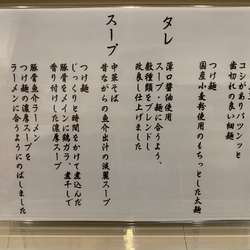 コシがあり、パツンッと
歯切れの良い細麺
つけ麺
国産小麦粉使用のもちっとした太麺
タレ
薄口醤油使用
スープ・麺に合うよう、
数種類をブレンドし
改良し仕上げました
スープ
中華そば
昔ながらの魚介出汁の淡麗スープ
つけ麺
じっくりと時間をかけて煮込んだ
豚骨をメインに鶏ガラ、煮干しで
香り付けした濃厚スープ
豚骨魚介ラーメン
つけ麺の濃厚スープを
ラーメンに合うようにのばしました